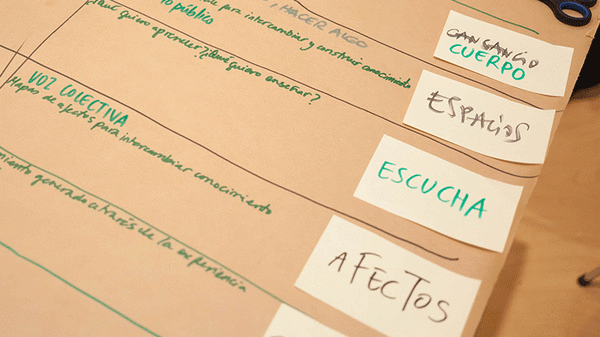 HACER ALGO
público
para intercambiar y construir conocimiento
¿Qué quiero aprender? ¿Qué quiero enseñar?
VOZ COLECTIVA
Mapas de afectos para intercambiar conocimiento
generado a través de la experiencia
CANSANCIO
CUERPO
ESPACIOS
ESCUCHA
AFECTOS